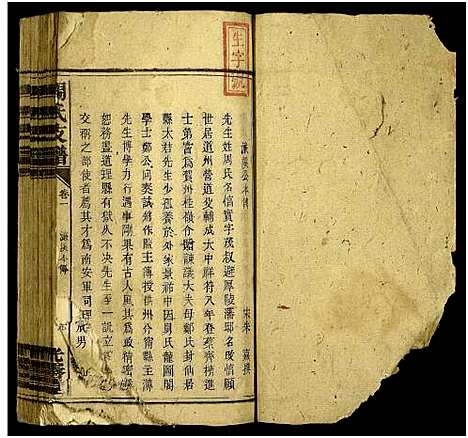 生字號
濂溪公本傳
宋朱熹撰
先生姓周氏名信實字茂叔避厚陵藩邸名改惇頤
世居道州營道父輔成大中祥符八年登蔡齊榜進
士第皆為賀州桂嶺
縣太君先生少孤養於外家景祐中因舅氏龍圖閣
學士鄭公向奏試將作監主簿授洪州分寧縣主簿
先生博學力行遇事剛果有古人風其為政精密嚴
恕務盡道理縣有獄久不決先生至一訊立
交稱之部使者薦其才為南安軍司理
周氏支譜
卷一
濂溪本傳